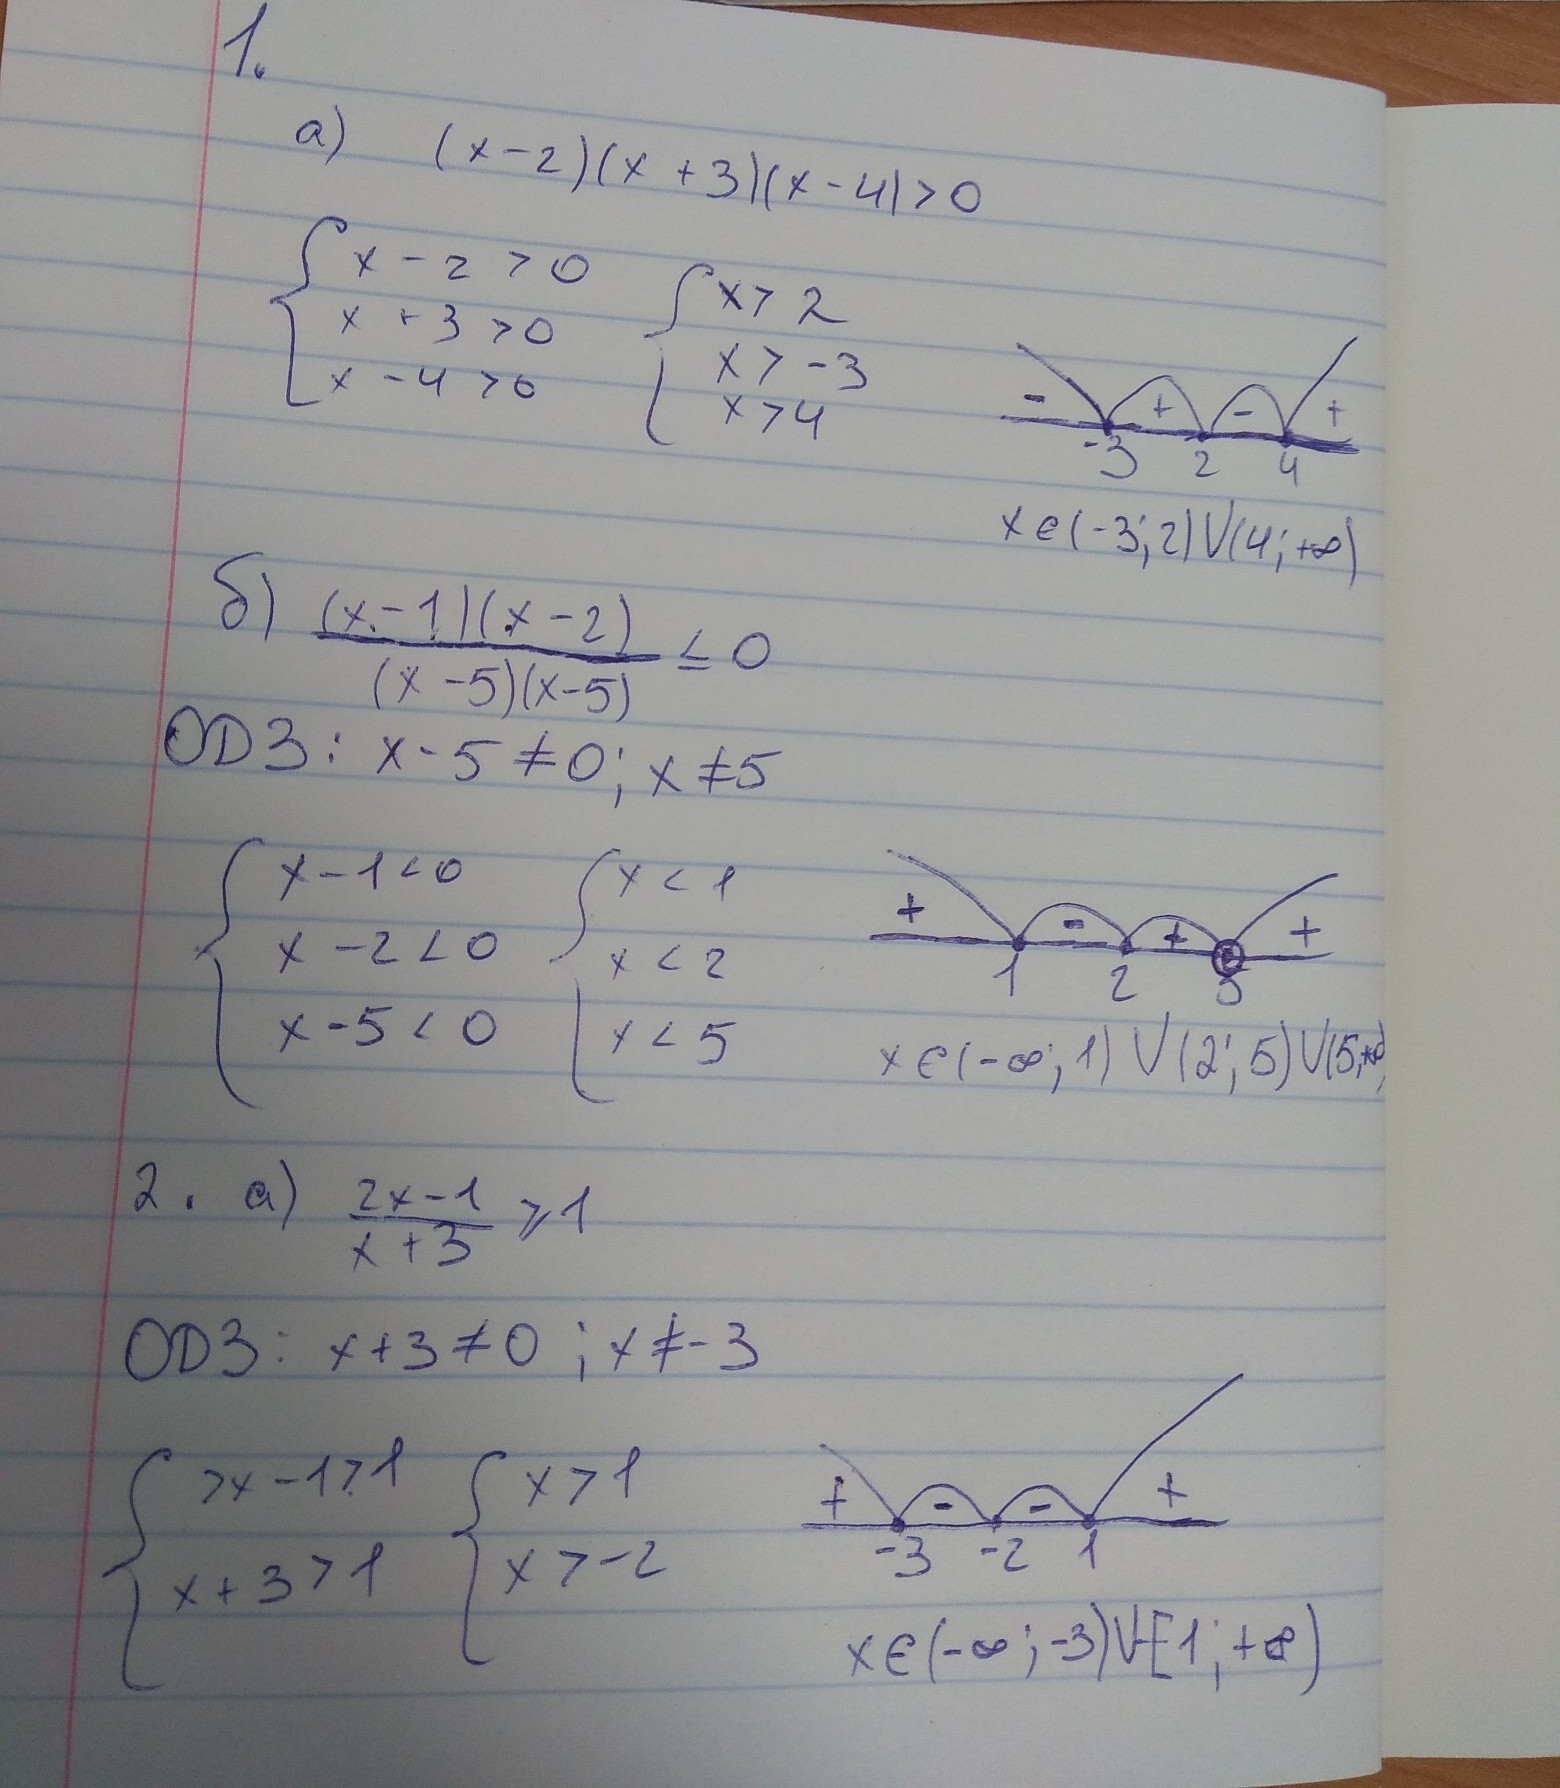 1.
а) (x-2)(x+3)(x-4)>0
x-2>0
x+3>0
x-4>0
x>2
x>-3
x>4
- + - +
-3 2 4
x∈(-3;2)∪(4;+∞)
б) (x-1)(x-2)
(x-5)(x-5)
≤0
ОДЗ: x-5≠0; x≠5
x-1<0
x-2<0
x-5<0
x<1
x<2
x<5
+ - + +
1 2 5
x∈(-∞;1)∪(2;5)∪(5;+∞)
2. а) 2x-1
x+3
≥1
ОДЗ: x+3≠0; x≠-3
2x-1>1
x+3>1
x>1
x>-2
+ - - +
-3 -2 1
x∈(-∞;-3)∪[1;+∞)